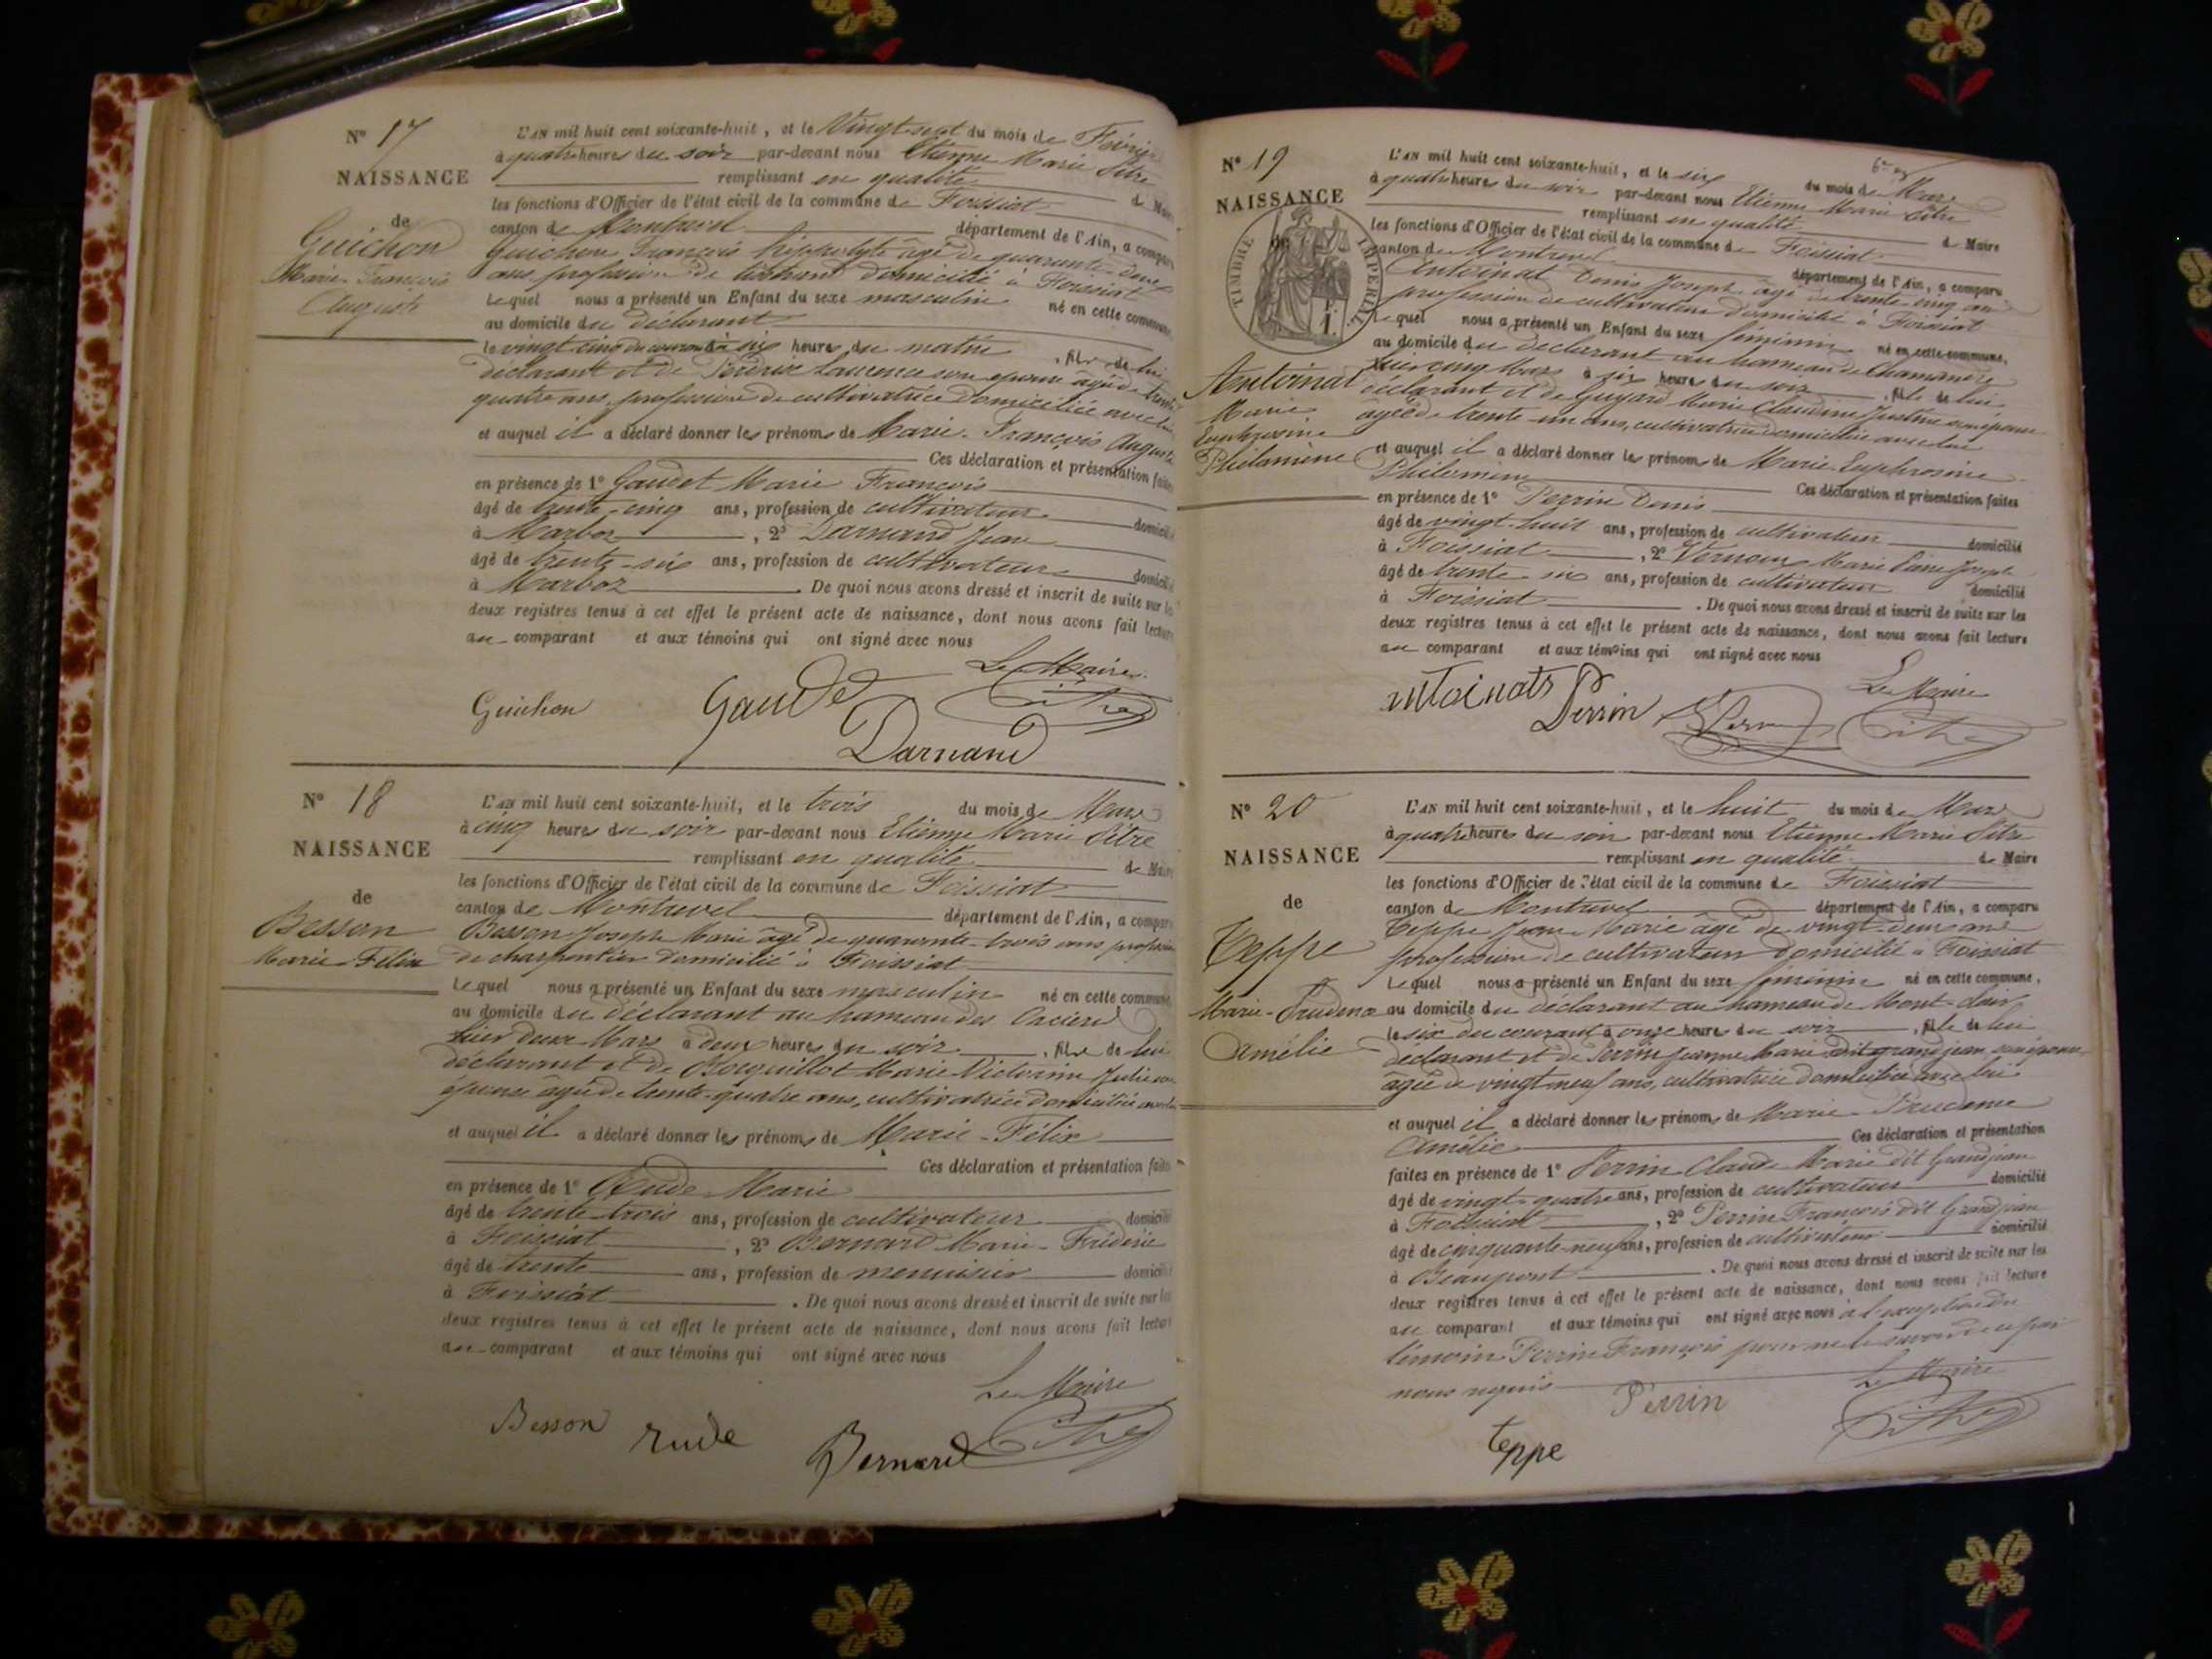 N° 17
NAISSANCE
de
Guichon
Marie François
Auguste
L'AN mil huit cent soixante-huit, et le Vingt-sept du mois de Février
à quatre heures du soir par-devant nous Etienne Marie Pitre
remplissant en qualité de Maire
les fonctions d'Officier de l'état civil de la commune de Foissiat
canton de Montrevel département de l'Ain, a comparu
Guichon François hippolyte âgé de quarante deux
ans, profession de domicilié à Foissiat
Lequel nous a présenté un Enfant du sexe masculin né en cette commune
au domicile du déclarant
le vingt cinq du courant à six heures du matin, fils de lui
déclarant et de Laurence son épouse âgée de trente
quatre ans, profession de cultivatrice domiciliée avec lui
et auquel il a déclaré donner les prénoms de Marie François Auguste
Ces déclaration et présentation faites
en présence de 1° Gaudet Marie François
âgé de trente-cinq ans, profession de cultivateur domicilié
à Marboz, 2° Darnand Jean
âgé de trente-six ans, profession de cultivateur domicilié
à Marboz. De quoi nous avons dressé et inscrit de suite sur les
deux registres tenus à cet effet le présent acte de naissance, dont nous avons fait lecture
au comparant et aux témoins qui ont signé avec nous
Le Maire
Guichon Gaudet Pitre
Darnand
N° 18
NAISSANCE
de
Besson
Marie-Félix
L'AN mil huit cent soixante-huit, et le trois du mois de Mars
à cinq heures du soir par-devant nous Etienne Marie Pitre
remplissant en qualité de Maire
les fonctions d'Officier de l'état civil de la commune de Foissiat
canton de Montrevel département de l'Ain, a comparu
Besson Joseph Marie âgé de quarante-trois ans profession
de charpentier domicilié à Foissiat
Lequel nous a présenté un Enfant du sexe masculin né en cette commune
au domicile du déclarant au hameau des
hier deux Mars à deux heures du soir, fils de lui
déclarant et de Bouquillot Marie Victorine Julie son
épouse âgée de trente-quatre ans, cultivatrice domiciliée avec lui
et auquel il a déclaré donner les prénoms de Marie-Félix
Ces déclaration et présentation faites
en présence de 1° Rude Marie
âgé de trente-trois ans, profession de cultivateur domicilié
à Foissiat, 2° Bernard Marie-Frédéric
âgé de trente ans, profession de menuisier domicilié
à Foissiat. De quoi nous avons dressé et inscrit de suite sur les
deux registres tenus à cet effet le présent acte de naissance, dont nous avons fait lecture
au comparant et aux témoins qui ont signé avec nous
Le Maire
Besson rude Bernard Pitre
N° 19
NAISSANCE
de
TIMBRE IMPERIAL
Antoinat
Marie
Euphrosine
Philomène
L'AN mil huit cent soixante-huit, et le six du mois de Mars
à quatre heures du soir par-devant nous Etienne Marie Pitre
remplissant en qualité de Maire
les fonctions d'Officier de l'état civil de la commune de Foissiat
canton de Montrevel département de l'Ain, a comparu
Antoinat Denis Joseph âgé de trente-cinq ans
profession de cultivateur domicilié à Foissiat
Lequel nous a présenté un Enfant du sexe féminin né en cette commune,
au domicile du déclarant au hameau de
hier cinq Mars à six heures du soir, fille de lui
déclarant et de Guyard Marie Claudine Justine son épouse
âgée de trente-un ans, cultivatrice domiciliée avec lui
et auquel il a déclaré donner les prénoms de Marie Euphrosine
Philomène Ces déclaration et présentation faites
en présence de 1° Perrin Denis
âgé de vingt-huit ans, profession de cultivateur domicilié
à Foissiat, 2° Vernoux Marie Pierre Joseph
âgé de trente six ans, profession de cultivateur domicilié
à Foissiat. De quoi nous avons dressé et inscrit de suite sur les
deux registres tenus à cet effet le présent acte de naissance, dont nous avons fait lecture
au comparant et aux témoins qui ont signé avec nous
Le Maire
antoinat Perrin Pitre
N° 20
NAISSANCE
de
Teppe
Marie-Prudence
Amélie
L'AN mil huit cent soixante-huit, et le huit du mois de Mars
à quatre heures du soir par-devant nous Etienne Marie Pitre
remplissant en qualité de Maire
les fonctions d'Officier de l'état civil de la commune de Foissiat
canton de Montrevel département de l'Ain, a comparu
Teppe Jean Marie âgé de vingt-deux ans
profession de cultivateur domicilié à Foissiat
Lequel nous a présenté un Enfant du sexe féminin né en cette commune,
au domicile du déclarant au hameau de Mont-
le six du courant à onze heures du soir, fille de lui
déclarant et de Perrin Jeanne Marie dit grandjean son épouse
âgée de vingt neuf ans, cultivatrice domiciliée avec lui
et auquel il a déclaré donner les prénoms de Marie Prudence
Amélie Ces déclaration et présentation
faites en présence de 1° Perrin Claude Marie dit Grandjean
âgé de vingt-quatre ans, profession de cultivateur domicilié
à Foissiat, 2° Perrin François dit Grandjean
âgé de cinquante-neuf ans, profession de cultivateur domicilié
à Beaupont. De quoi nous avons dressé et inscrit de suite sur les
deux registres tenus à cet effet le présent acte de naissance, dont nous avons fait lecture
au comparant et aux témoins qui ont signé avec nous à l'exception du
témoin Perrin François pour ne le savoir de ce par
nous requis
Le Maire
Perrin Pitre
teppe